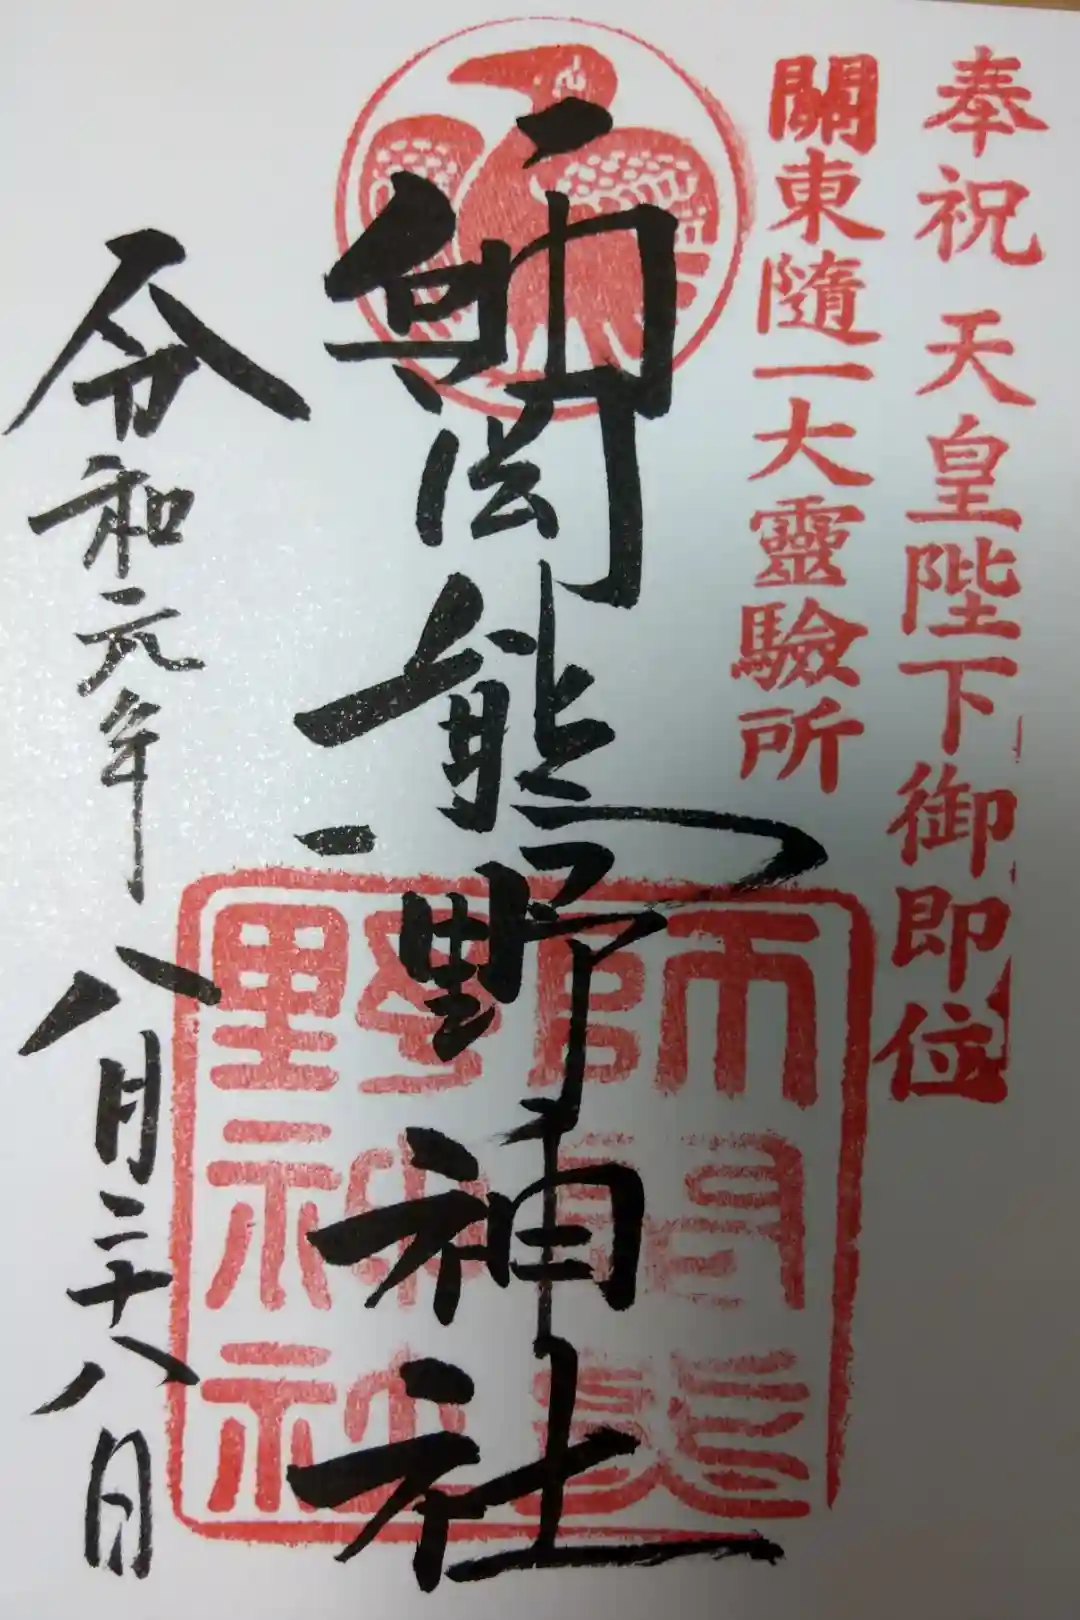 奉祝 天皇陛下御即位
關東隨一大靈驗所
師岡熊野神社
令和元年八月二十八日
師岡熊
野神社